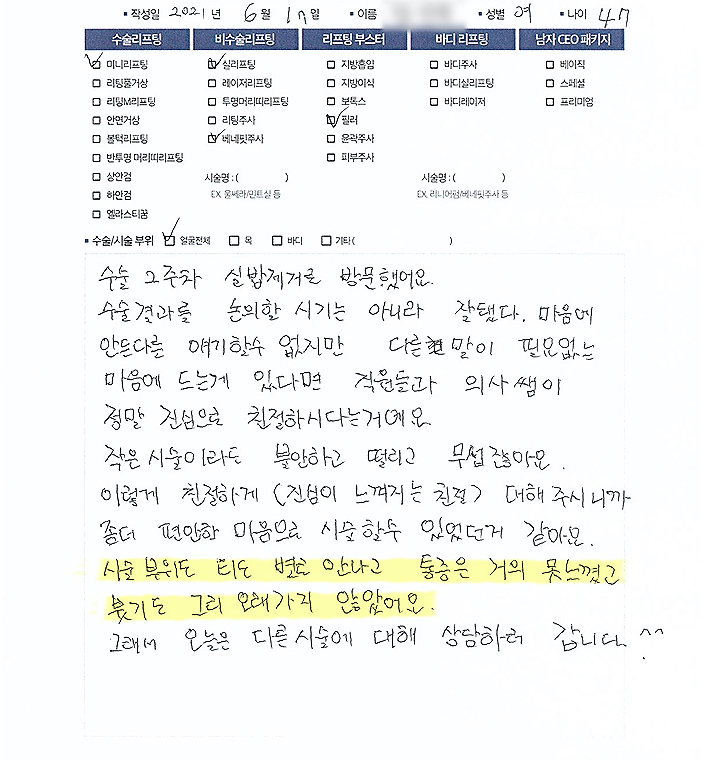 • 작성일 2021 년 6 월 17 일 • 이름 • 성별 여 • 나이 47
수술리프팅 비수술리프팅 리프팅 부스터 바디 리프팅 남자 CEO 패키지
미니리프팅 실리프팅 지방흡입 바디주사 베이직
리팅풀거상 레이저리프팅 지방이식 바디실리프팅 스페셜
리팅M리프팅 투명머리띠리프팅 보톡스 바디레이저 프리미엄
안면거상 리팅주사 필러
볼턱리프팅 베네핏주사 윤곽주사
반투명 머리띠리프팅 피부주사
상안검 시술명 : ( ) 시술명 : ( )
하안검 EX. 울쎄라/민트실 등 EX. 리니어펌/베네핏주사 등
엘라스티꿈
• 수술/시술 부위 얼굴전체 목 바디 기타( )
수술 2주차 실밥제거로 방문했어요.
수술결과를 논의할 시기는 아니라 잘됐다. 마음에
안든다를 얘기할수 없지만 다른 말이 필요없는
마음에 드는게 있다면 직원들과 의사쌤이
정말 진심으로 친절하시다는거예요
작은 시술이라도 불안하고 떨리고 무섭잖아요.
이렇게 친절하게 (진심이 느껴지는 친절) 대해주시니까
좀더 편안한 마음으로 시술할수 있었던거 같아요.
시술 부위도 티도 별로 안나고 통증은 거의 못느꼈고
붓기도 그리 오래가지 않았어요.
그래서 오늘은 다른시술에 대해 상담하러 갑니다. ^^